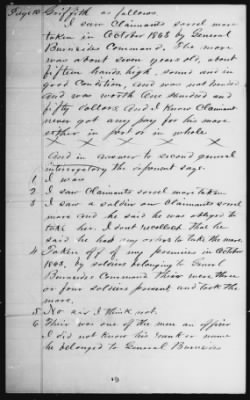 Page 10 Griffith as follows.
I saw Claimants sorrel mare
taken in October 1863 by General
Burnsides Command. The mare
was about seven years old, about
fifteen hands high, sound and in
good condition, and was not branded
and was worth One hundred and
fifty dollars. And I know Claimant
never got any pay for his mare
either in part or in whole
X X X X X X
And in answer to second general
interrogatory the deponent says.
1 I was
2 I saw Claimants sorrel mare taken
3 I saw a soldier on Claimants sorrel
mare and he said he was obliged to
take her. I dont recollect that he
said he had any orders to take the mare.
4 Taken off of my premises in October
1863, by soldiers belonging to Genral
Burnsides Command Their were three
or four soldiers present and took the
mare.
5 No sir I think not.
6 Their was one of the men an officer
I did not know his rank or name
he belonged to General Burnsides